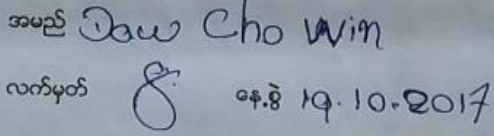 အမည် Daw Cho Win
လက်မှတ် နေ့စွဲ 19.10.2017